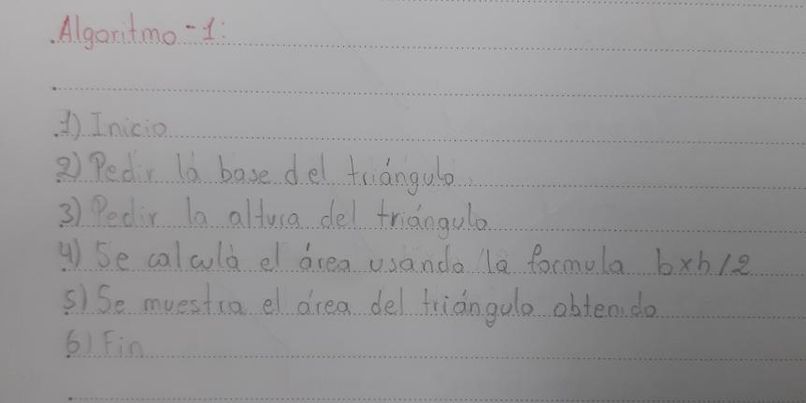 .Algoritmo-1:
1) Inicio
2) Pedir la base del triángulo
3) Pedir la altura del triángulo
4) Se calcula el área usando la formula bxh/2
5) Se muestra el área del triángulo obtenido
6) Fin